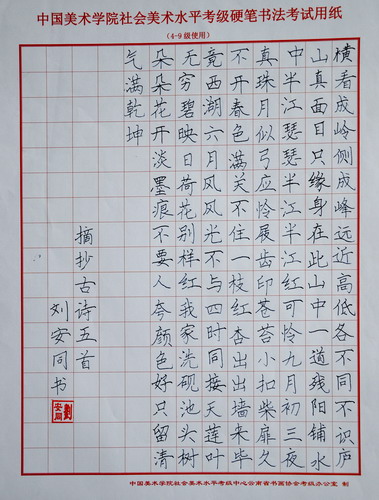 中国美术学院社会美术水平考级硬笔书法考试用纸
(4-9级使用)
横看成岭侧成峰远近高低各不同不识庐
山真面目只缘身在此山中一道残阳铺水
中半江瑟瑟半江半江红可怜九月初三夜
真珠月似弓应怜屐齿印苍苔小扣柴扉久
不开春色满关不住一枝红杏出出墙来毕
竟西湖六月风风光不与四时同接天莲叶
无穷碧映日荷花别样红我家洗砚池头树
朵朵花开淡墨痕不要人夸颜色好只留清
气满乾坤
摘抄古诗五首
刘安同书
中国美术学院社会美术水平考级中心云南省书画协会考级办公室 制